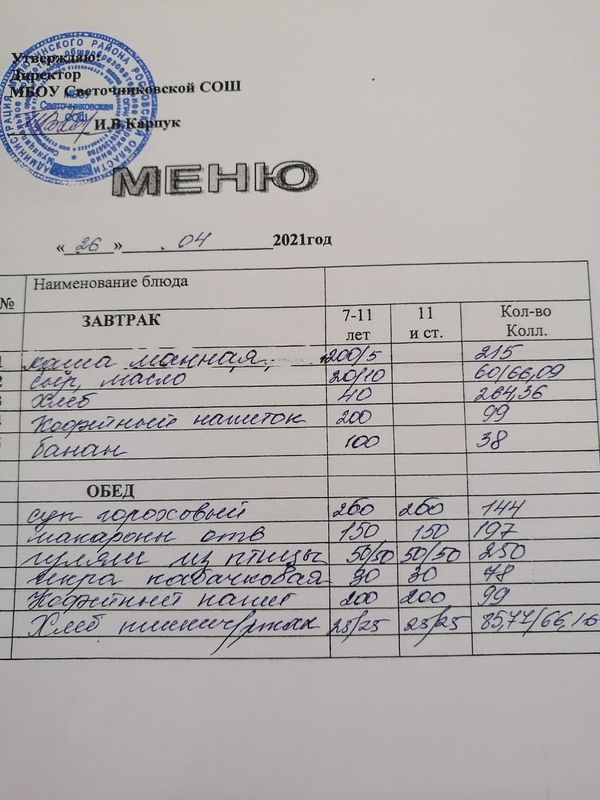 Утверждаю:
Директор
МБОУ Светочниковской СОШ
И.В.Карпук
МБОУ
Светочниковская
СОШ
МЕНЮ
«26» .04 2021год
№ Наименование блюда
ЗАВТРАК 7-11 лет 11 и ст. Кол-во Колл.
каша манная, 200/5 215
сыр, масло 20/10 60/66,09
хлеб 40 264,36
Кофейный напиток 200 99
банан 100 38
ОБЕД
суп гороховый 260 260 144
макароны отв 150 150 197
гуляш из птицы 50/50 50/50 250
икра кабачковая 30 30 78
Кофейный напит 200 200 99
Хлеб пшенич/ржан 25/25 25/25 85,77/66,16